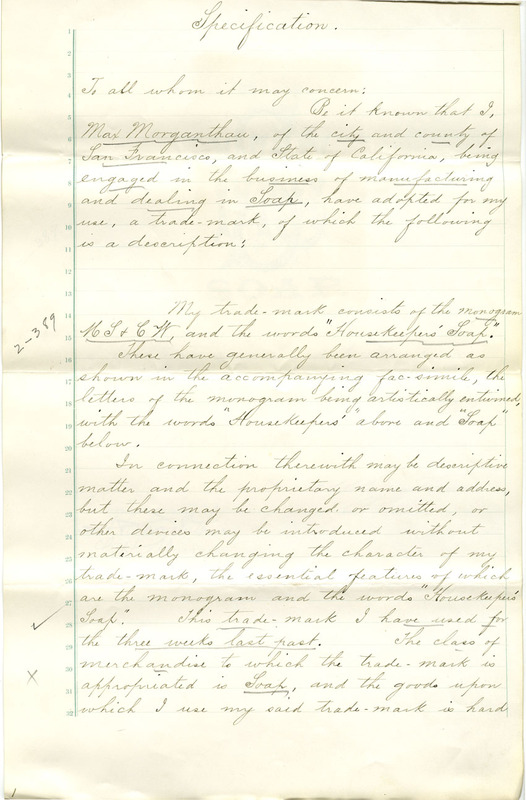 Specification.
1
2
3
4
To all whom it may concern:
5
Be it known that I,
6
Max Morganthau, of the city and county of
7
San Francisco, and State of California, being
8
engaged in the business of manufacturing
9
and dealing in Soap, have adopted for my
10
use, a trade-mark, of which the following
11
is a description:
12
13
14
My trade-mark consists of the monogram
2-389
15
M S & C W, and the words "Housekeepers' Soap".
16
These have generally been arranged as
17
shown in the accompanying fac-simile, the
18
letters of the monogram being artistically entwined,
19
with the words "Housekeepers'" above and "Soap"
20
below.
21
In connection therewith may be descriptive
22
matter and the proprietary name and address,
23
but these may be changed or omitted, or
24
other devices may be introduced without
25
materially changing the character of my
trade-mark, the essential features of which
26
are the monogram and the words "Housekeepers'
27
Soap". This trade-mark I have used for
28
the three weeks last past. The class of
29
merchandise to which the trade-mark is
30
x
31
appropriated is Soap, and the goods upon
32
which I use my said trade-mark is hard